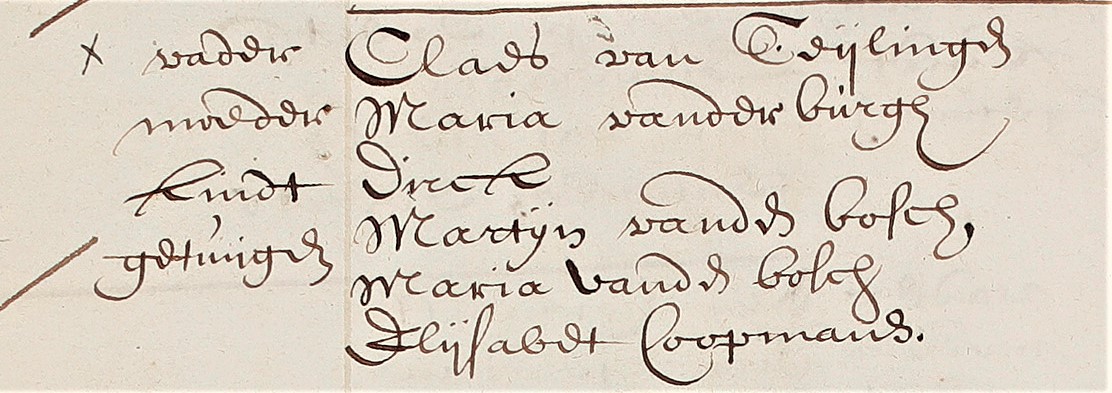 x vader Claes van Teijlingen
moeder Maria vander burgh
kindt Dirck
getuijgen Martijn vanden bosch,
Maria vanden bosch
Elijsabet Coopmans.